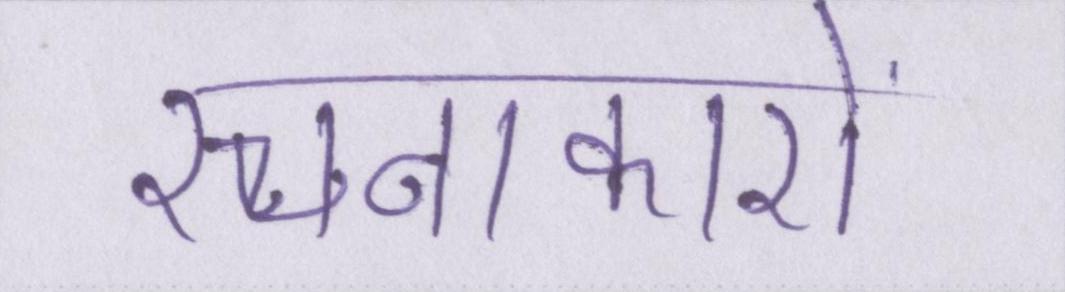 रचनाकारों